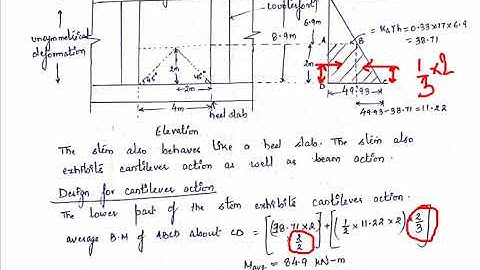 counterfort
6.9m
8.9m
= KaγTh = 0.33×17×6.9
= 38.71
unsymmetrical
deformation
A
B
2m
2m
45°
45°
2m
D
C
1/3 ×2
49.93
4m
49.93-38.71=11.22
heel slab
Elevation
The stem also behaves like a heel slab. The stem also
exhibits cantilever action as well as beam action.
Design for cantilever action
The lower part of the stem exhibits cantilever action.
average B.M of ABCD about CD = [(38.71×2) 2/2] + [(1/2 × 11.22 × 2) 2/3]
Mavg = 84.9 kN-m